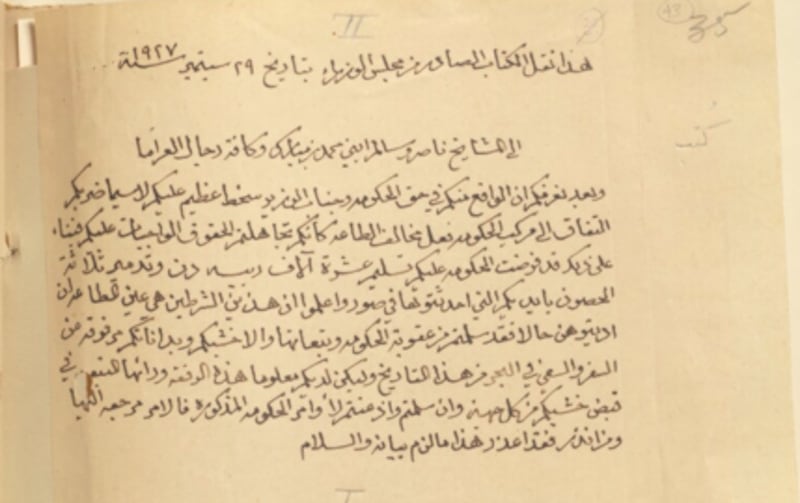 II
43
35
هذا نقل الكتاب الصادر من مجلس الوزراء بتاريخ ٢٩ سبتمبر سنة ١٩٢٧
الى المشايخ ناصر وسالم ابني محمد بن مبارك وكافة رجال العراما
وبعد نعرفكم ان الواقع منكم في حق الحكومه وجناب الوزير سخط عظيم عليكم لاسيما ضربكم
التفاق الى مركب الحكومه فعل مخالف الطاعه كأنكم تجاهلتم الحقوق الواجبات عليكم فبناء
على ذلك قد فرضت الحكومه عليكم تسليم عشرة آلاف ربيه دن وتدمير ثلاثة
الحصون بايديكم التي احدثتوتها في صور واعلموا ان هذين الشرطين هي عين فان
اديتوهن حالا فقد سلمتم من عقوبة الحكومه وتبعاتها والا خشبكم وبداناتكم مرفوقه عن
السفر والسعي في البحر من هذا التاريخ وليكن لديكم معلوما هذا الرفقه ورائها في
قبض خشبكم من كل جهة وان سلمتم واذعنتم لأوامر الحكومه المذكوره فالامر مرجعه اليها
ومن انذر فقد اعذر هذا ما لزم بيانه والسلام
I